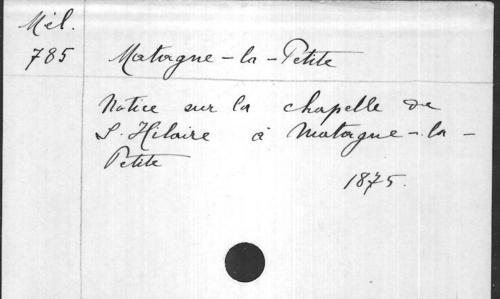 Mél.
785
Matagne-la-Petite
Notice sur la chapelle de
S. Hilaire à Matagne-la-
Petite
1875.